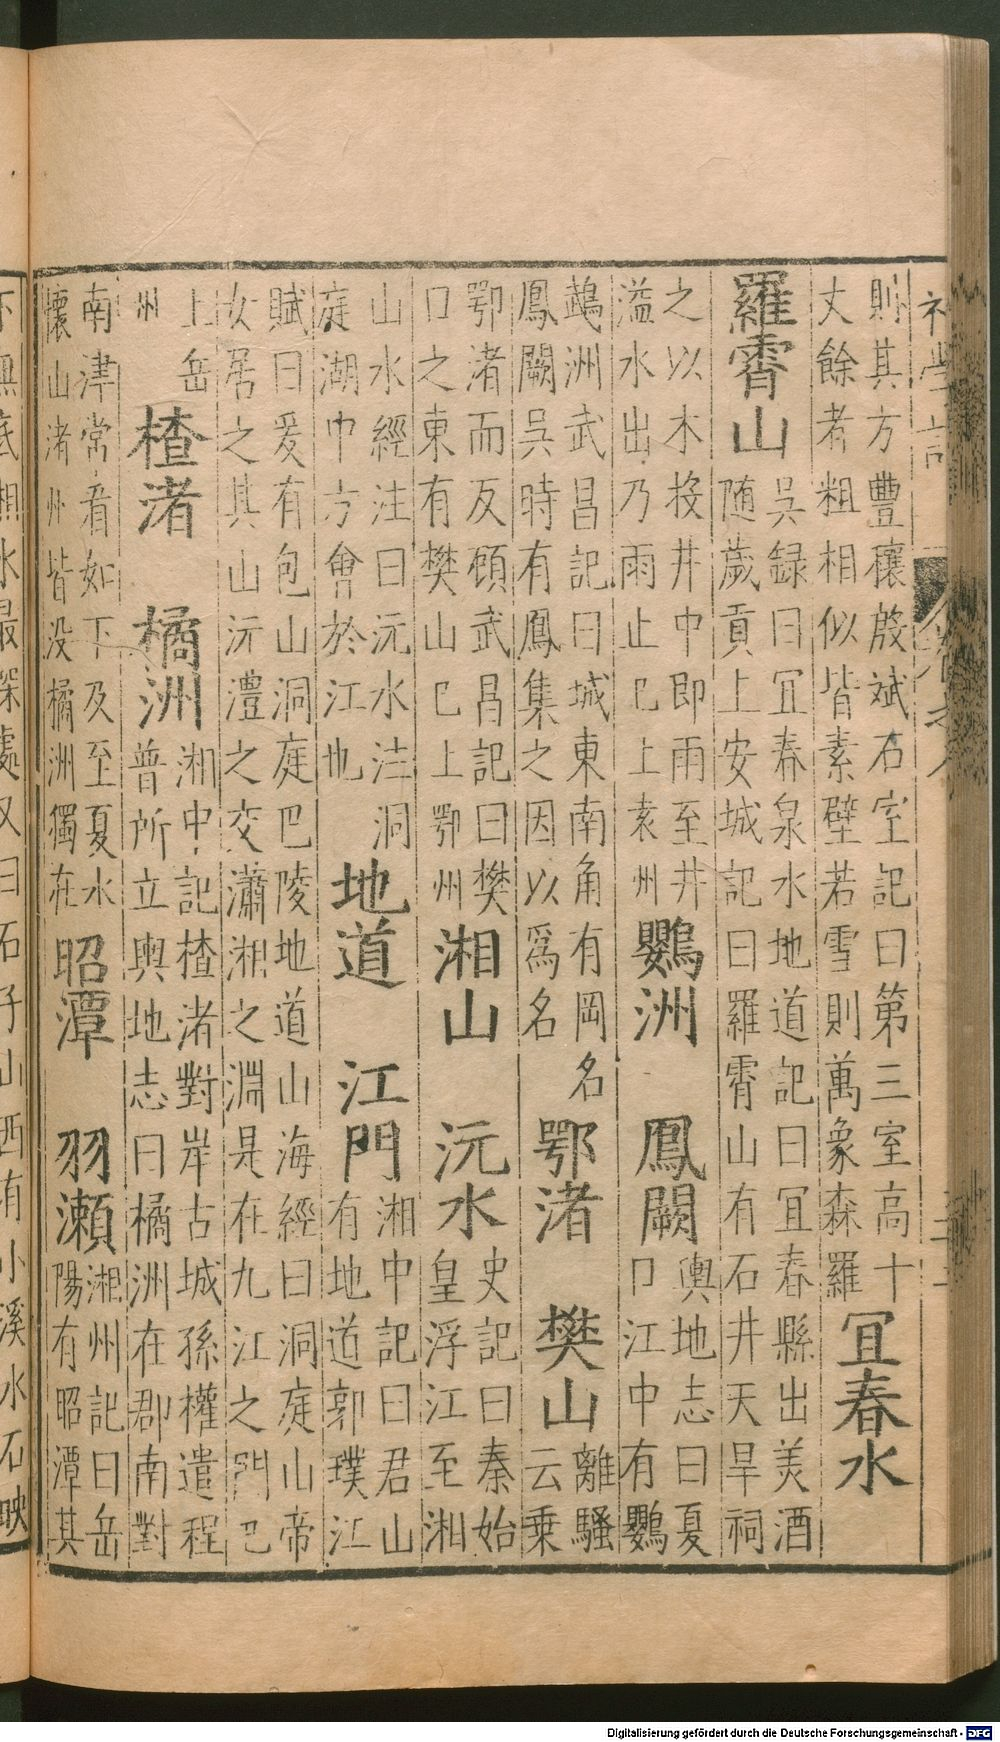 則其方豐穰殷斌石室記曰第三室高十
丈餘者粗相似皆素壁若雪則萬象森羅
宜春水
羅霄山
吳録曰宜春泉水地道記曰宜春縣出美酒
随歲貢上安城記曰羅霄山有石井天旱祠
之以木投井中即雨至井
溢水出乃雨止已上袁州
鸚洲 鳳闕
輿地志曰夏
口江中有鸚
鵡洲武昌記曰城東南角有岡名
鳳闕吳時有鳳集之因以爲名
鄂渚 樊山
離騷
云乗
鄂渚而反頋武昌記曰樊
口之東有樊山已上鄂州
湘山 沅水
史記曰秦始
皇浮江至湘
山水經注曰沅水注洞
庭湖中方會於江也
地道 江門
湘中記曰君山
有地道郭璞江
賦曰爰有包山洞庭巴陵地道山海經曰洞庭山帝
女居之其山沅澧之交瀟湘之淵是在九江之門巴
上岳
州
楂渚 橘洲
湘中記楂渚對岸古城孫權遣程
普所立輿地志曰橘洲在郡南對
南津常看如下及至夏水
懷山渚州皆没橘洲獨在
昭潭 羽瀬
湘州記曰岳
陽有昭潭其
無底湘水最深處又曰石子山西有小溪水石映
Digitalisierung gefördert durch die Deutsche Forschungsgemeinschaft - DFG